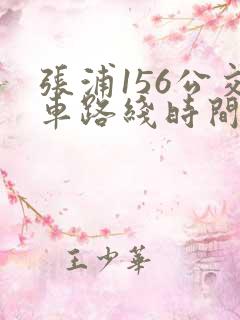 張浦156公交
車路綫時間
王少華